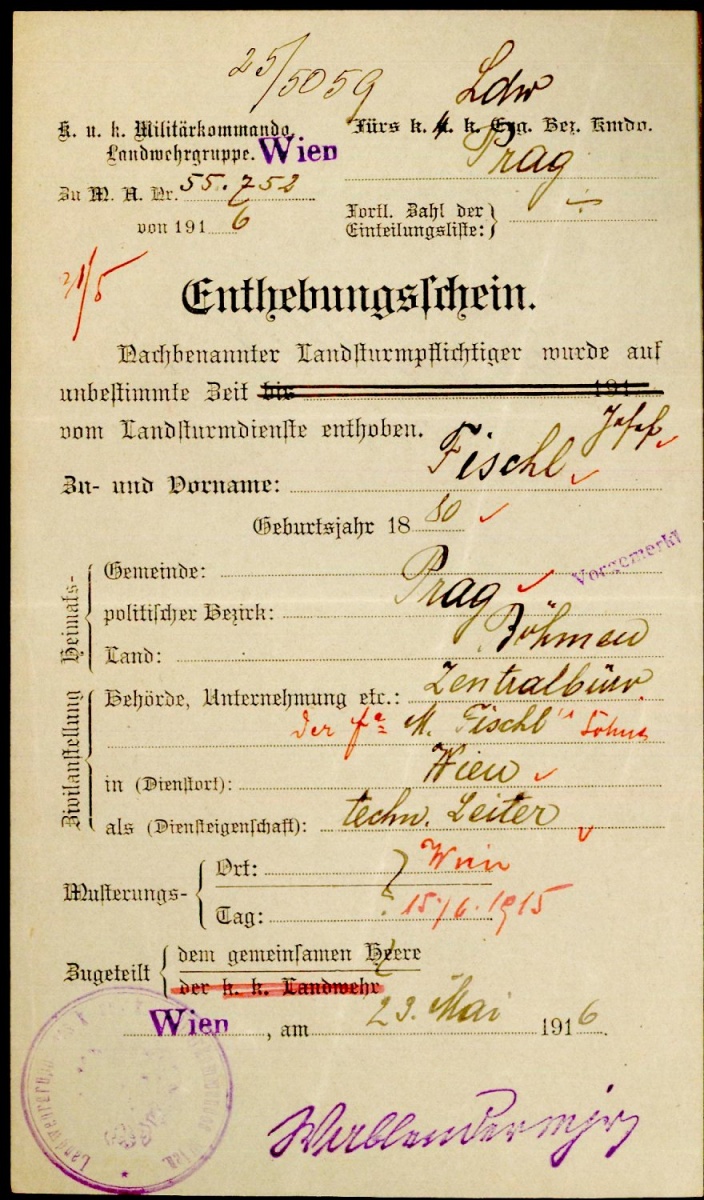 25/5059
Ldw
K. u. k. Militärkommando,
Landwehrgruppe. Wien
Fürs k. u. k. Erg. Bez. Kmdo.
Prag
Zu M. A. Nr. 55.752
von 1916
Fortl. Zahl der
Einteilungsliste:
21/5
Enthebungsschein.
Nachbenannter Landsturmpflichtiger wurde auf
unbestimmte Zeit bis 191
vom Landsturmdienste enthoben.
Zu- und Vorname: Fischl Josef
Geburtsjahr 1880
Vorgemerkt
Heimats-
Gemeinde:
politischer Bezirk: Prag
Land: Böhmen
Zivilanstellung
Behörde, Unternehmung etc.: Zentralbüro
der fa M. Fischl's Söhne
in (Dienstort): Wien
als (Diensteigenschaft): techn. Leiter
Musterungs-
Ort: Wien
Tag: 15./6. 1915
Zugeteilt
dem gemeinsamen Heere
der k. k. Landwehr
Wien, am 23. Mai 1916.